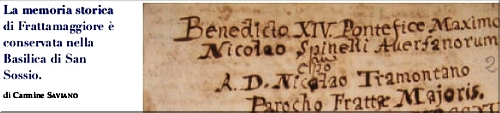 La memoria storica
di Frattamaggiore è
conservata nella
Basilica di San
Sossio.
di Carmine SAVIANO
Benedicto XIV. Pontefice Maximo
Nicolao Spinelli Averfanorum
A. D. Nicolao Tramontano
Parocho Frattæ Majoris.